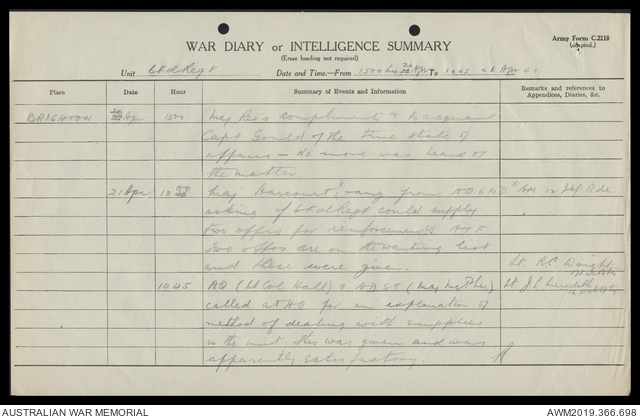 Army Form C.2118
(adapted.)
WAR DIARY or INTELLIGENCE SUMMARY
(Erase heading not required)
Unit 6 Fd Regt Date and Time—From 1500 hrs 20 Apr To 26 Apr
Place Date Hour Summary of Events and Information Remarks and references to Appendices, Diaries, &c.
BRIGHTON 20 Apr 1500 Maj Rees compliments & acquaint
Capt Gould of the true state of
affairs – No more was heard of
the matter.
21 Apr 10 Maj Harcourt rang from HQ 6 MD
asking if 6 Fd Regt could supply
two offrs for reinforcements AIF
Two offrs are on the waiting list
and these were given. Lt R C Wright
1045 AQ (Lt Col Hall) & ADST (Maj McPhee) Lt J L Meredith
called at HQ for an explanation of
method of dealing with supplies
in the unit. This was given and was
apparently satisfactory.
AUSTRALIAN WAR MEMORIAL AWM2019.366.698